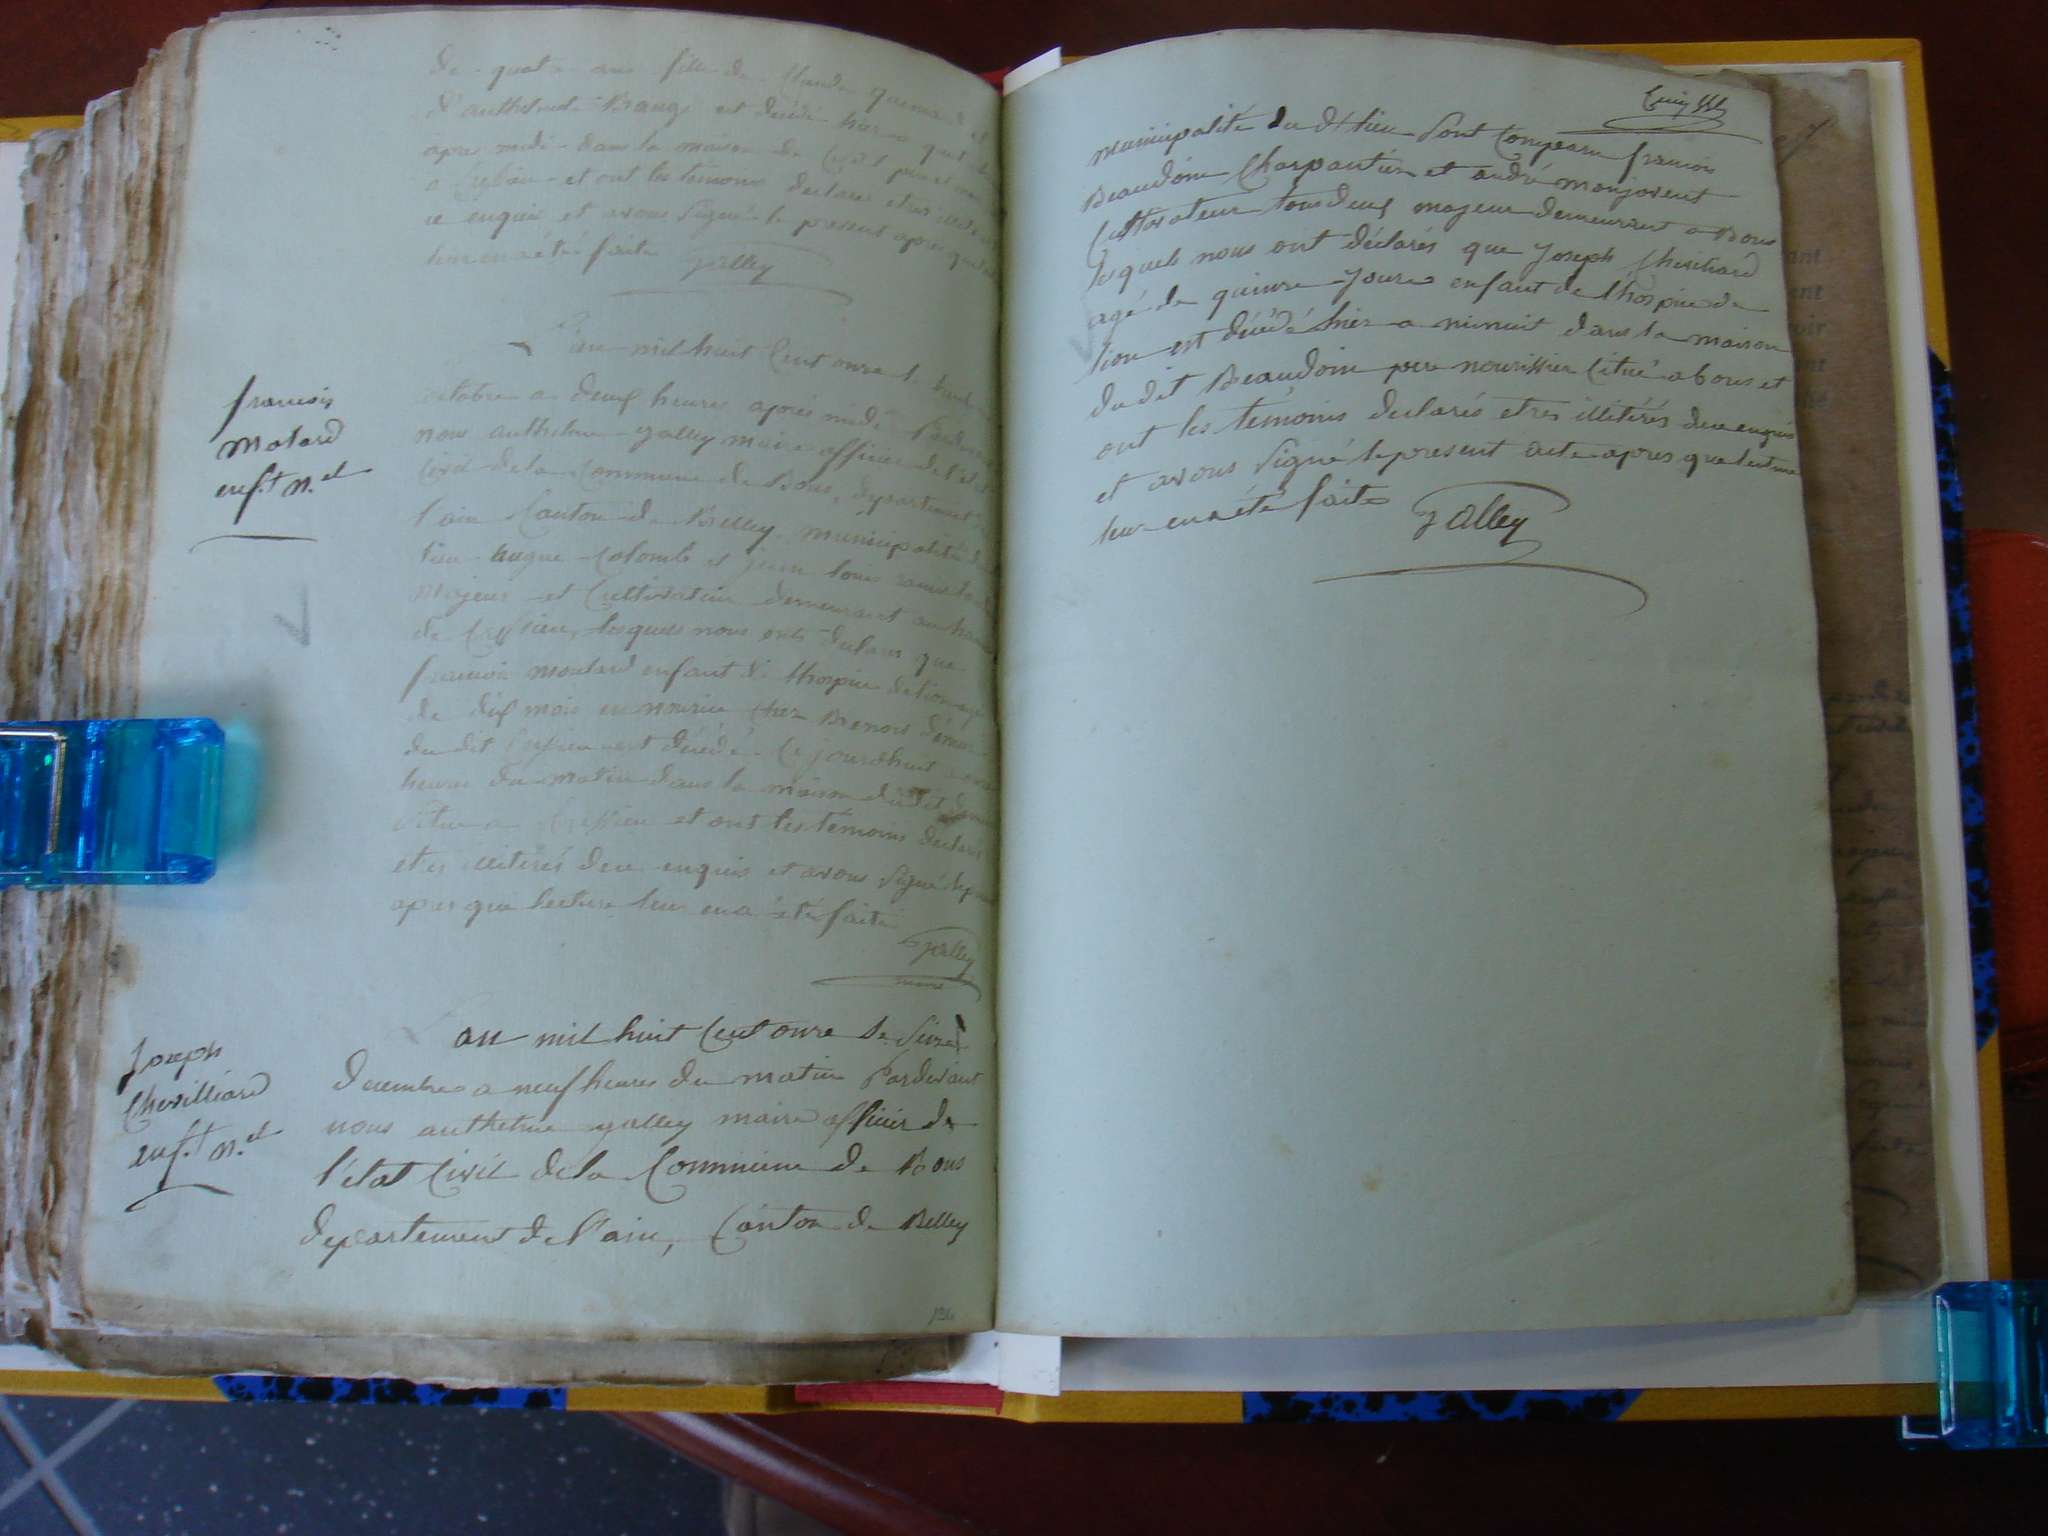 de quatre ans fille de Claude quemard et
d'anthelmette Brange et décédé hier a quatre
apres midi dans la maison de
a et ont les témoins declares etres
ce enquis et avons Signé le present apres que
leur en a été faite
yalley
francois
motard
enf.t n.el
L'an mil huit Cent onze le
octobre a deuf heures aprés midi Pardevant
nous anthelme yalley maire officier de l'état
Civil de la Commune de Bons, departement de
l'ain Canton de Belley, municipalité du
lieu hugue Colomb et jean louis
Majeur et Cultivateur demeurant au
de Cressieu, lesquels nous onts declares que
francois moutard enfant de lhospice de lion agé
de dix mois en nourice Chez Benoit
du dit Cressieu est décédé Ce jourdhuit a
heures du matin dans la maison dudit
Situe a Cressieu et ont les témoins declares
etres illiterés deu enquis et avons Signé le
apres que lecture leur en a été faite
yalley
maire
Joseph
Chevilliard
enf.t n.el
L'an mil huit Cent onze le Seize
decembre a neuf heures du matin Pardevant
nous anthelme yalley maire officier de
l'état Civil de la Commune de Bons
departement de l'ain, Canton de Belley
municipalité du dt lieu Sont Comparu francois
Beaudoin Charpantier et andré monjovent
Cultivateur tous deuf majeur demeurant a Bons
lesquels nous ont déclarés que Joseph Cheviliard
agé de quinze Jours enfant de lhospice de
lion est décédé hier a minuit dans la maison
du dit Beaudoin pere nourissier Citué a bons et
ont les témoins declarés etres illitérés deu enquis
et avons Signé le present acte apres que lecture
leur en a été faite
yalley